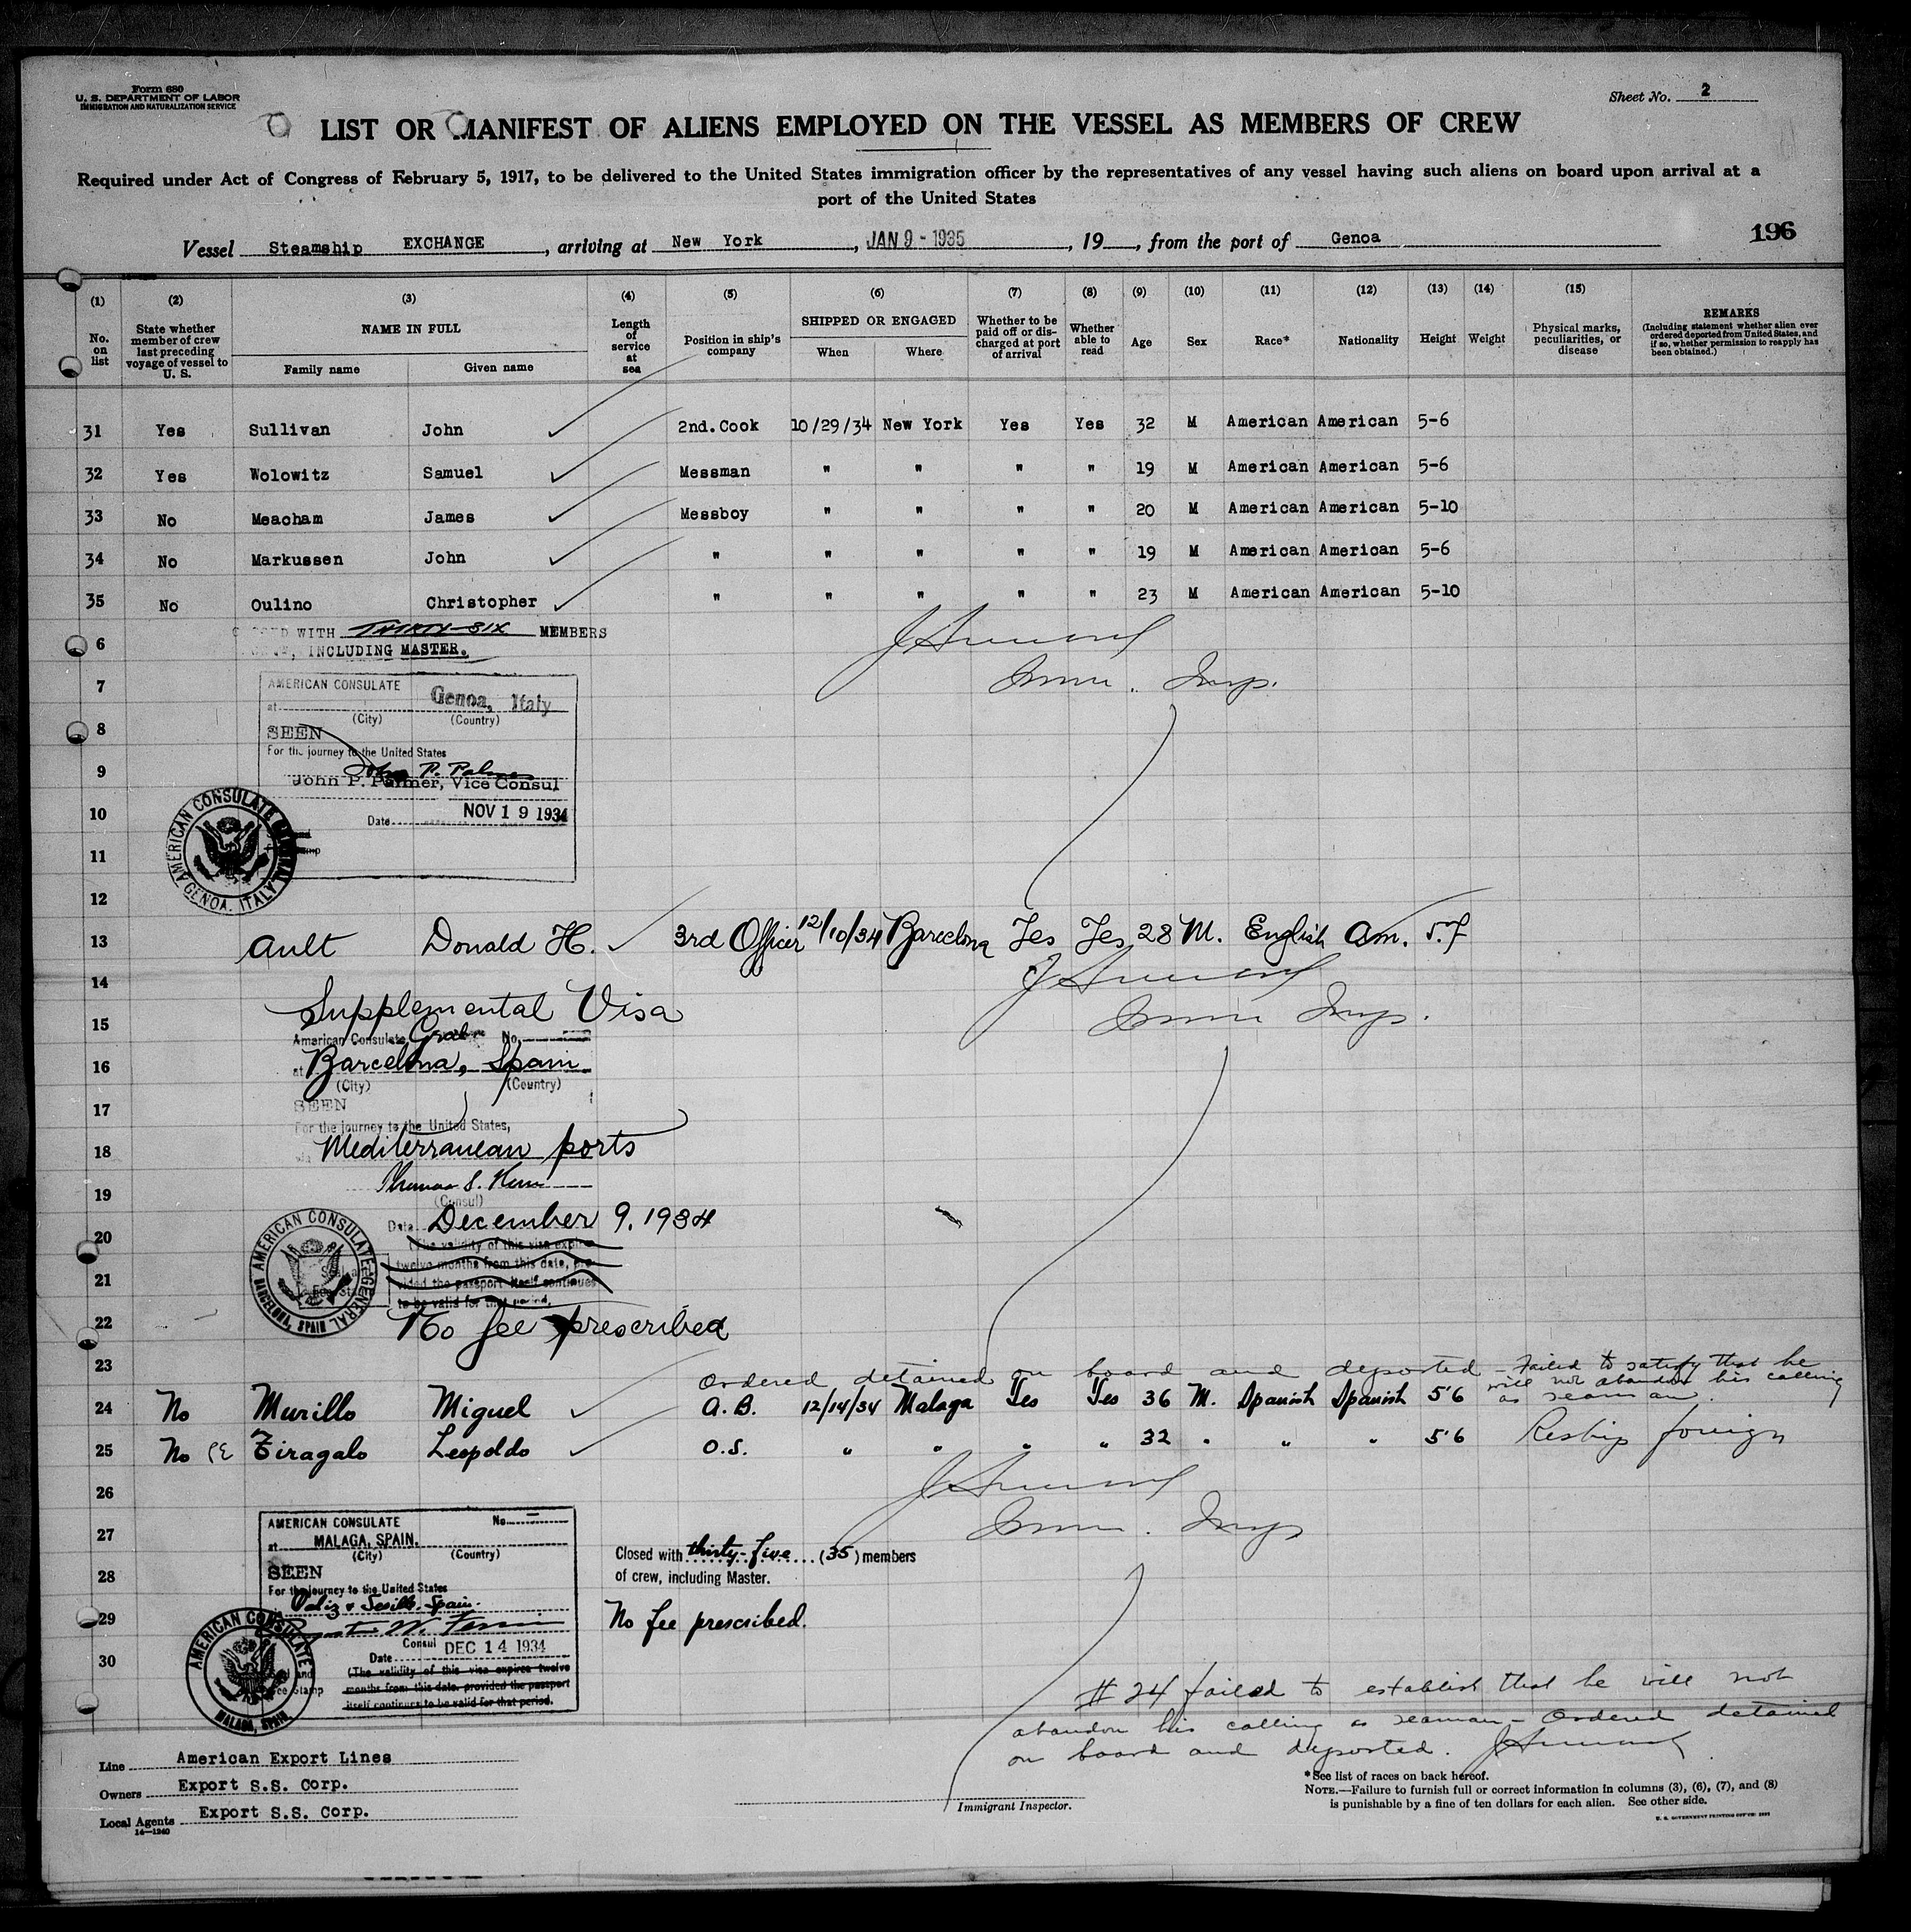 Form 680
U. S. DEPARTMENT OF LABOR
IMMIGRATION AND NATURALIZATION SERVICE
Sheet No. 2
LIST OR MANIFEST OF ALIENS EMPLOYED ON THE VESSEL AS MEMBERS OF CREW
Required under Act of Congress of February 5, 1917, to be delivered to the United States immigration officer by the representatives of any vessel having such aliens on board upon arrival at a
port of the United States
Vessel Steamship EXCHANGE, arriving at New York, JAN 9 - 1935, 19, from the port of Genoa
196
(1) No. on list
(2) State whether member of crew last preceding voyage of vessel to U. S.
(3) NAME IN FULL
Family name Given name
(4) Length of service at sea
(5) Position in ship's company
(6) SHIPPED OR ENGAGED
When Where
(7) Whether to be paid off or discharged at port of arrival
(8) Whether able to read
(9) Age
(10) Sex
(11) Race*
(12) Nationality
(13) Height
(14) Weight
(15) Physical marks, peculiarities, or disease
REMARKS
(Including statement whether alien ever ordered deported from United States, and if so, whether permission to reapply has been obtained.)
31 Yes Sullivan John 2nd. Cook 10/29/34 New York Yes Yes 32 M American American 5-6
32 Yes Wolowitz Samuel Messman " " " " 19 M American American 5-6
33 No Meacham James Messboy " " " " 20 M American American 5-10
34 No Markussen John " " " " " 19 M American American 5-6
35 No Oulino Christopher " " " " " 23 M American American 5-10
WITH THIRTY-SIX MEMBERS
6 INCLUDING MASTER.
7 AMERICAN CONSULATE
at Genoa, Italy
(City) (Country)
8 SEEN
For the journey to the United States
9 John P. Palmer
John P. Palmer, Vice Consul
10 Date NOV 19 1934
11
AMERICAN CONSULATE GENERAL
GENOA, ITALY
Imm. Insp.
12
13 Ault Donald H. 3rd Officer 12/10/34 Barcelona Yes Yes 28 M. English Am. 5.7
14
Imm Insp.
Supplemental Visa
15 American Consulate General No.
16 at Barcelona, Spain
(City) (Country)
17 SEEN
For the journey to the United States,
18 Mediterranean ports
19
(Consul)
Date December 9, 1934
20 (The validity of this visa expires
twelve months from this date, pro-
21 vided the passport itself continues
to be valid for that period.
AMERICAN CONSULATE GENERAL
BARCELONA, SPAIN
22 No fee prescribed
23 Ordered detained on board and deported - Failed to satisfy that he
will not abandon his calling
as seaman.
24 No Murillo Miguel A. B. 12/14/34 Malaga Yes Yes 36 M. Spanish Spanish 5'6
25 No Tiragalo Leopoldo O.S. " " " " 32 " " " 5'6 Reship foreign
26
27
Imm. Insp
AMERICAN CONSULATE No.
at MALAGA, SPAIN.
(City) (Country)
Closed with thirty-five (35) members
28 SEEN
of crew, including Master.
For the journey to the United States
29 Seville, Spain.
No fee prescribed.
Consul DEC 14 1934
30 Date
(The validity of this visa expires twelve
months from this date, provided the passport
itself continues to be valid for that period.
AMERICAN CONSULATE
MALAGA, SPAIN
# 24 failed to establish that he will not
abandon his calling as seaman - Ordered detained
on board and deported.
Line American Export Lines
Owners Export S.S. Corp.
Local Agents Export S.S. Corp.
14—1240
Immigrant Inspector.
*See list of races on back hereof.
NOTE.—Failure to furnish full or correct information in columns (3), (6), (7), and (8)
is punishable by a fine of ten dollars for each alien. See other side.